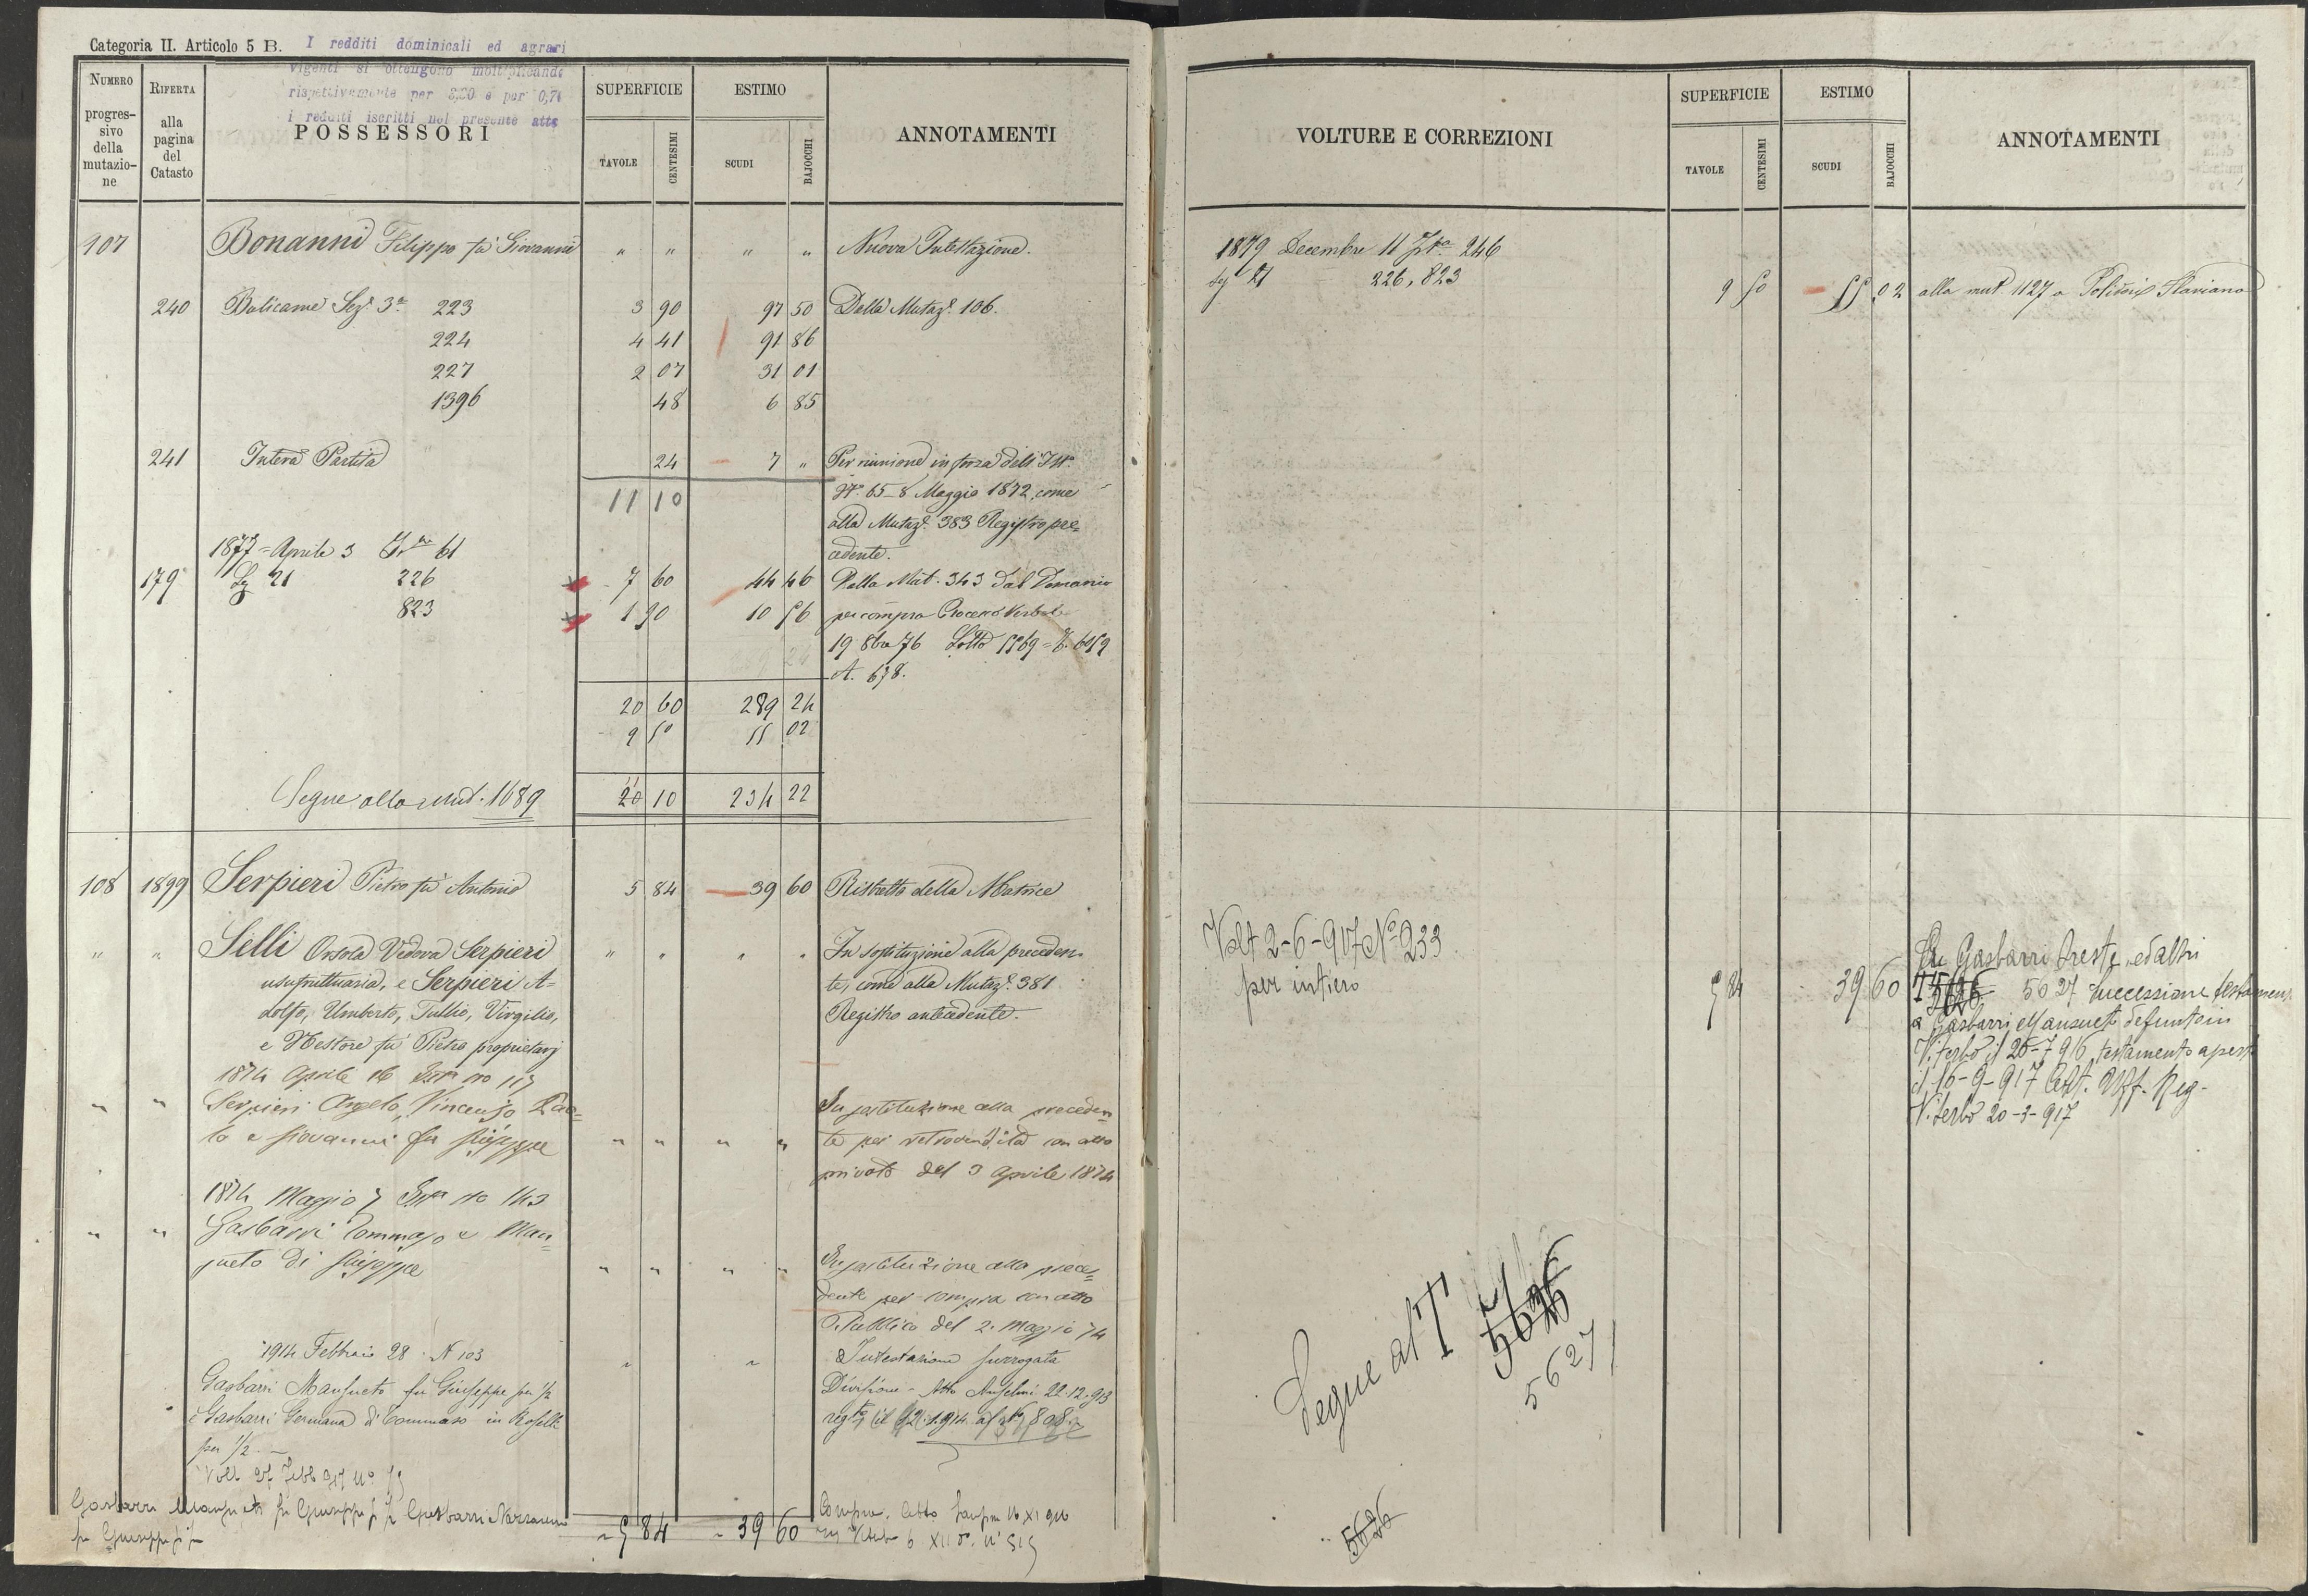 Categoria II. Articolo 5 B.
I redditi dominicali ed agrari
vigenti si ottengono moltiplicando
rispettivamente per 3,20 e per 0,70
i redditi iscritti nel presente atto
NUMERO progressivo della mutazione
RIFERTA alla pagina del Catasto
POSSESSORI
SUPERFICIE
TAVOLE
CENTESIMI
ESTIMO
SCUDI
BAJOCCHI
ANNOTAMENTI
107 Bonanni Filippo fu Giovanni " " " " Nuova Intestazione.
240 Bulicame Sez.e 3a 223 3 90 97 50 Dalla Mutaz.e 106.
224 4 41 91 86
227 2 07 31 01
1396 48 6 85
241 Intera Partita 24 7 " Per riunione in forza dell' Istr.
N.o 65_8 Maggio 1872, come
11 10
alla Mutaz.e 383 Registro pre=
cedente.
1877 = Aprile 3 61
179 21 226 7 60 44 46 Dalla Mut. 343 dal Demanio
823 1 90 10 56 per compra Processo Verbale
19 8bre 76 Lotto 5569 =
A. 638.
20 60 289 24
9 50 55 02
Segue alla Mut. 1689 20 11 10 234 22
108 1899 Serpieri Pietro fu Antonio 5 84 39 60 Ristretto della Matrice
" " Selli Orsola Vedova Serpieri " " " " In sostituzione alla preceden=
usufruttuaria, e Serpieri A=
te, come alla Mutaz.e 381
dolfo, Umberto, Tullio, Virgilio,
Registro antecedente.
e Nestore fu Pietro proprietarj
1874 Aprile 16 no 117
" " Serpieri Angelo, Vincenzo Pao=
lo e Giovanni fu Giuseppe " " " "
In sostituzione alla preceden=
te per retrovendita con atto
privato del 3 Aprile 1874
1874 Maggio 7 no 143
" " Gasbarri Tommaso e Man=
sueto di Giuseppe " " " "
In sostituzione alla prece=
dente per compra con atto
Pubblico del 2. Maggio 74
1914 Febbraio 28. N 103 " "
Intestazione surrogata
Gasbarri Mansueto fu Giuseppe per 1/2
Divisione - Atto Anselmi 22.12.913
e Gasbarri Germana di Tommaso in Roselli
per 1/2.
Volt 27 Febb 917 No
Gasbarri Mansueto fu Giuseppe Gasbarri Nazzareno
fu Giuseppe
5 84 39 60
Compra. Atto
VOLTURE E CORREZIONI
SUPERFICIE
TAVOLE
CENTESIMI
ESTIMO
SCUDI
BAJOCCHI
ANNOTAMENTI
1879 Decembre 11 246
21 226, 823 9 50 55 02 alla mut. 1127 a Flaviano
Volt 2-6-917 No 233
per intiero 5 84 39 60
Gasbarri Oreste ed altri
successione testamen.
a Gasbarri Mansueto defunto in
Viterbo il 26-7 916, testamento aperto
il 16-9-917 Uff. Reg-
Viterbo 20-3-917
Segue al T 5626
5627
5626